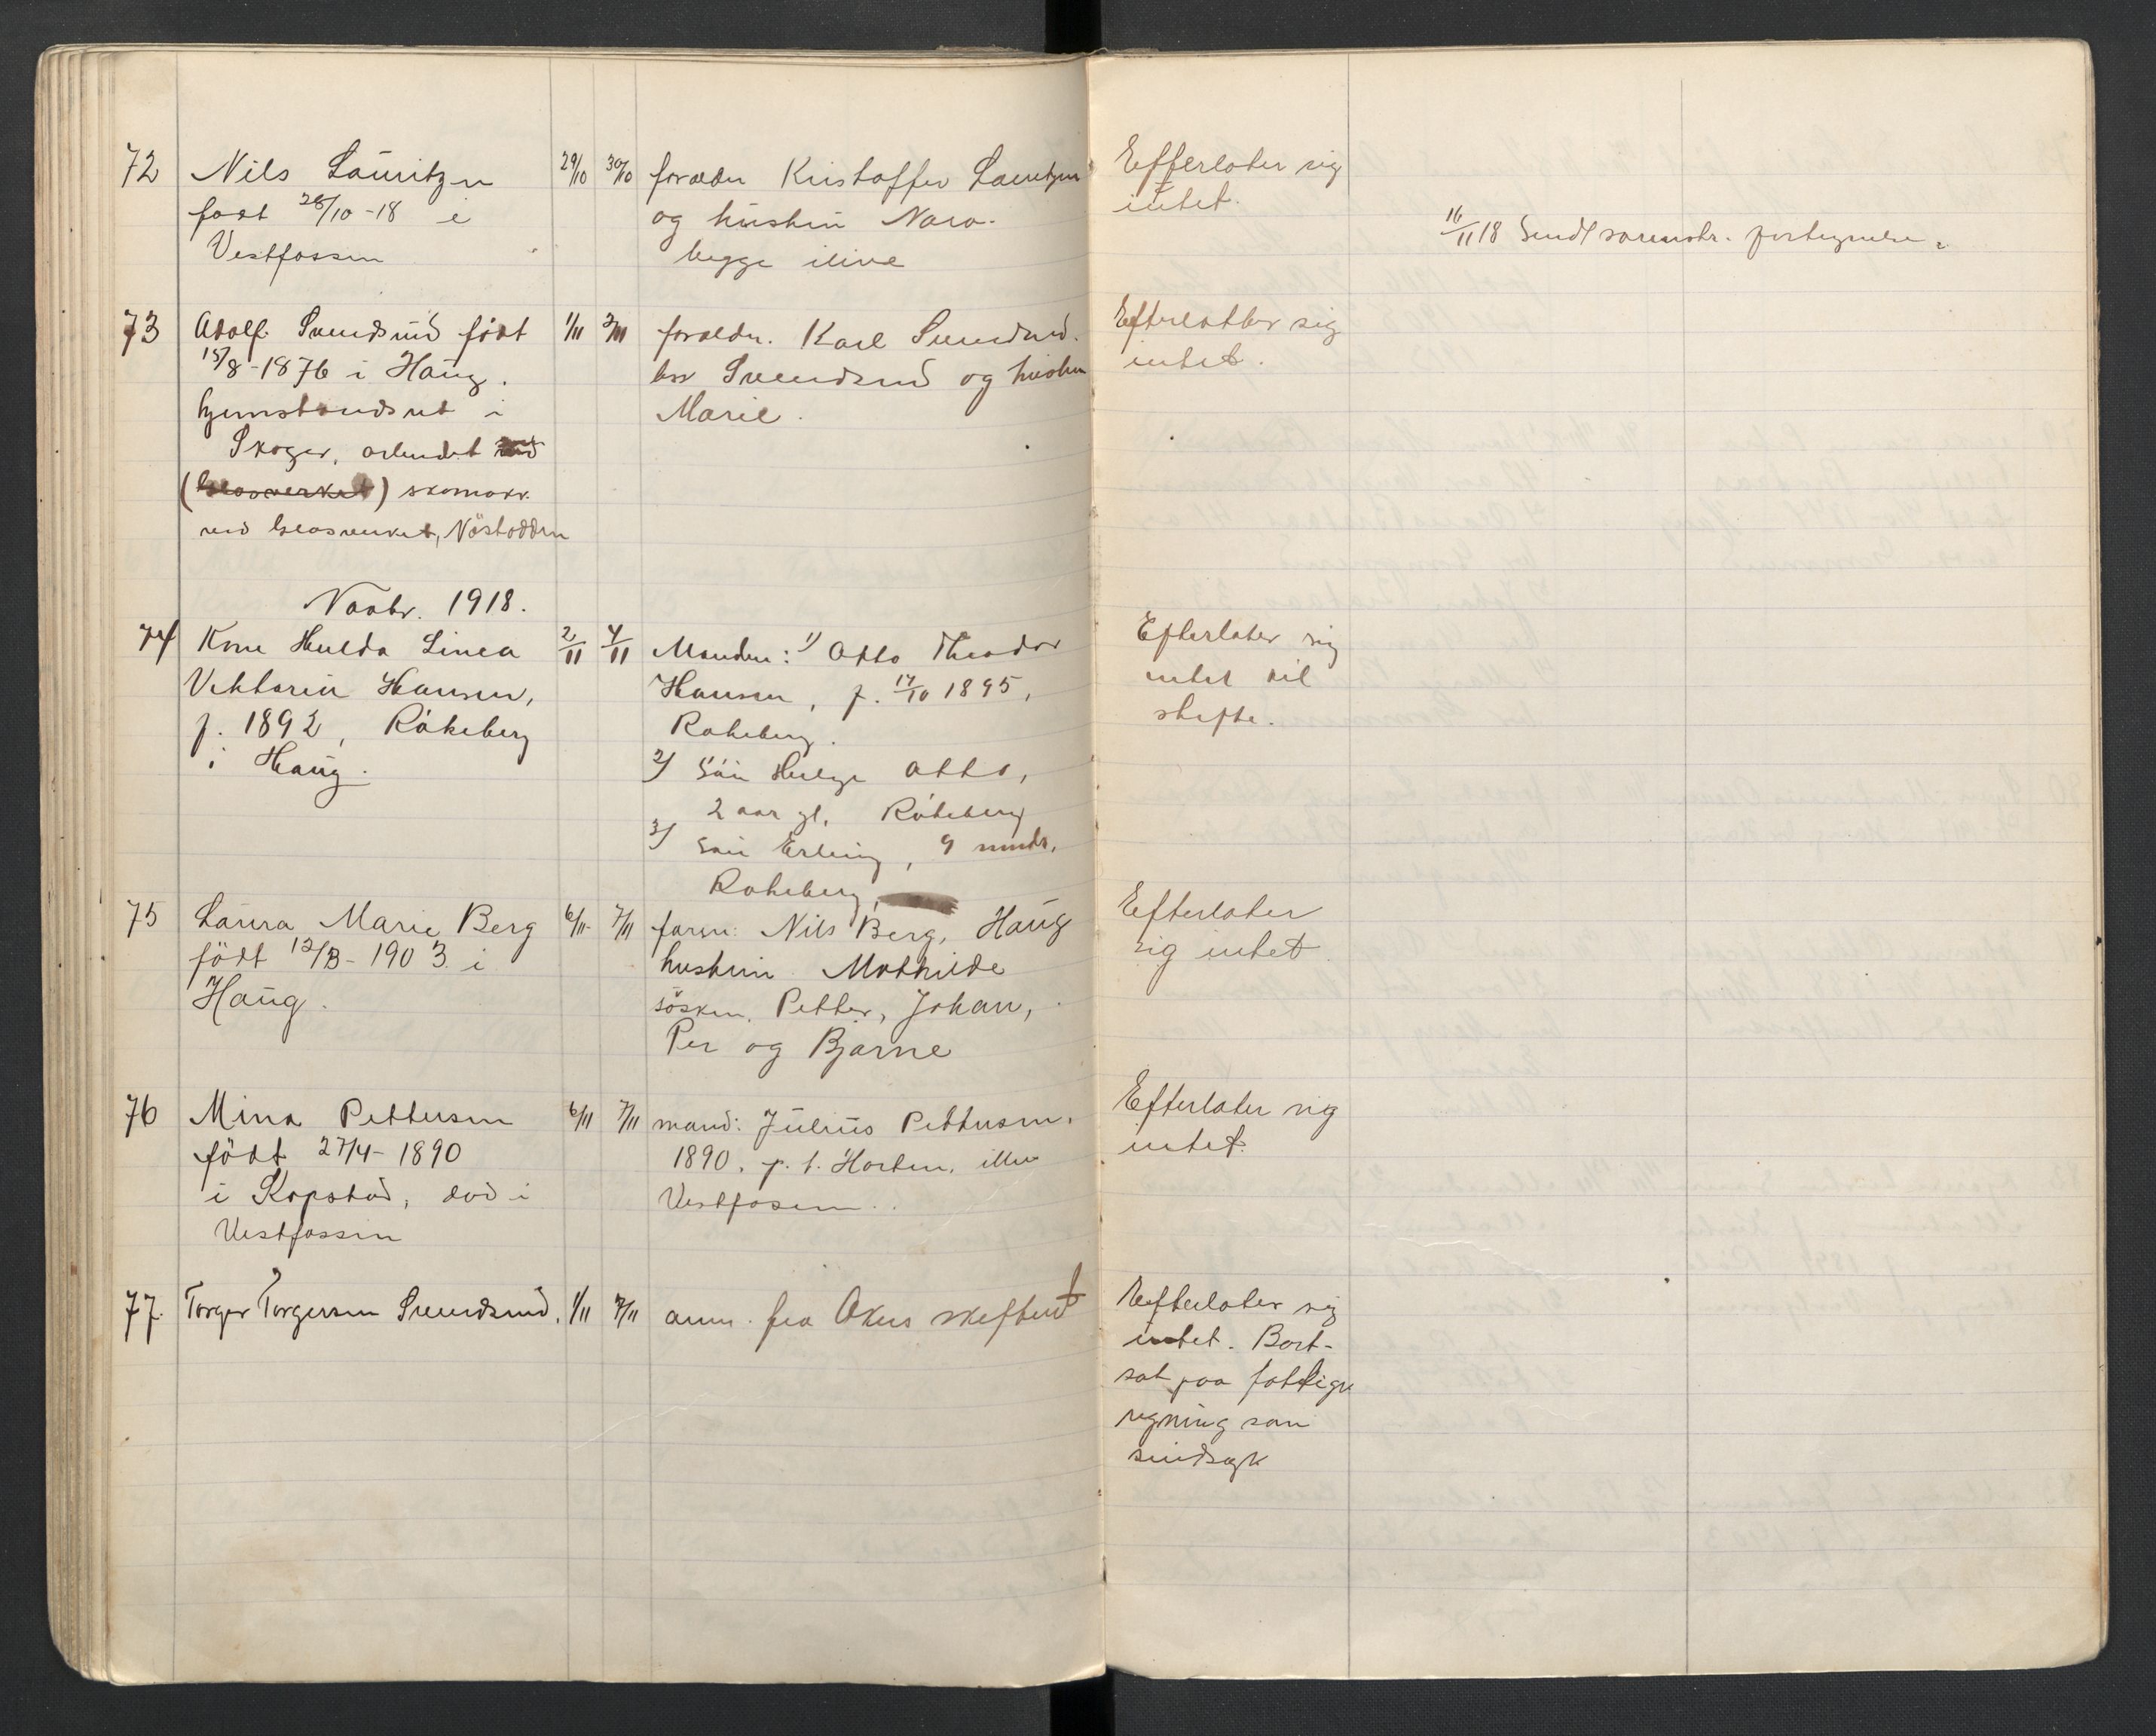 72 Nils Lauritzen 29/10 30/10 forældre Kristoffer Lauritzen Efterlater sig
født 28/10-18 i og hustru Nara. intet.
Vestfossen begge ilive 16/11 18 Sendt sorenskr. fortegnelse.
73 Adolf Svendsrud født 1/11 2/11 forældre. Karl Svendsrud. Efterlatter sig
15/8-1876 i Haug. Svendsrud og hustru intet.
hjemstavdsret i Marie.
Skoger, arbeidet ved
(Glassverket) skomaker
ved Glasverket, Nöstodden
Novbr. 1918.
74 Kone Hulda Linea 2/11 4/11 Manden: 1) Otto Theodor Efterlater sig
Viktoria Hansen, Hansen, f. 14/10 1895, intet til
f. 1892, Råkeberg Rakeberg. skifte.
i Haug. 2) Sön Helge Otto,
2 aar gl. Råkeberg
3) Sön Erling, 9 mndr.
Rakeberg,
75 Laura Marie Berg 6/11 7/11 farm: Nils Berg, Haug Efterlater
født 12/3-1903 i hustru Mathilde sig intet.
Haug. sösken, Petter, Johan,
Per og Bjarne
76 Mina Pettersen 6/11 7/11 mand: Julius Pettersen. Efterlater sig
født 27/4-1890 1890. p.t. Horten, intet.
i Kopstad, död i Vestfossen.
Vestfossen
77. Torger Torgersen Svendsrud. 1/11 7/11 anm. fra Okers Efterlater sig
intet. Bort-
sat paa fattige
regning som
sindsyk